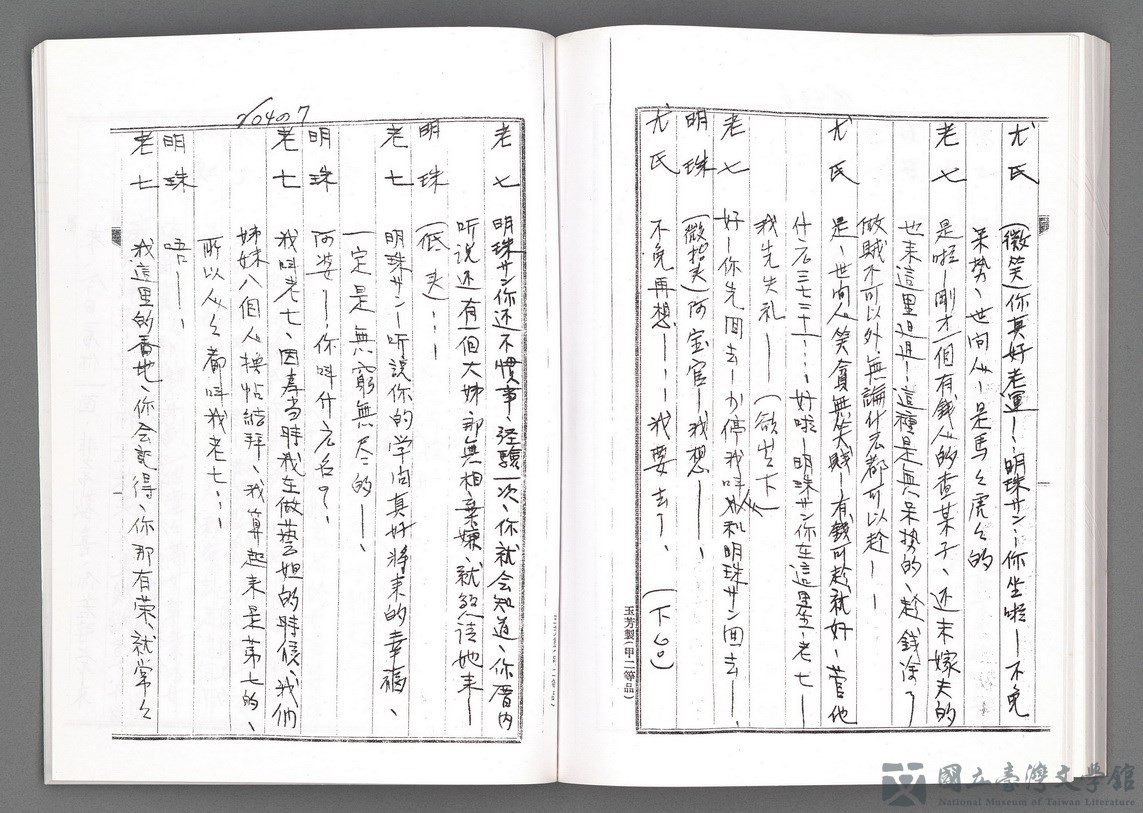 尤氏　(微笑)你真好老運——、明珠サン——你坐啦——不免
呆勢、世间人——是馬々虎々的
老七　是啦——剛才一個有錢人的查某子、还未嫁夫的
也来這里𨑨迌——這種是無呆势的、趁錢除了
做賊不可以外無論什么都可以趁——
尤氏　是、世间人笑貧無笑賤——有錢可趁就好、管他
什么三七三十……好啦——明珠サン你在這里坐、老七——
我先失礼——　(欲出下)
老七　好—你先回去——小停我叫人和明珠サン回去——、
明珠　(微笑)阿宝官——我想——、
尤氏　不免再想——……我要去了、　(下台)
玉芳製(甲二等品)
704の7
老七　明珠サン你还不慣事、经驗一次、你就会知道、你厝内
听说还有一個大姊那無相棄嫌、就叫她来——
明珠　(低头)……
老七　明珠サン—听説你的学问真好将来的幸福、
一定是無窮無尽的——、
明珠　阿婆——、你叫什么名？、
老七　我叫老七、因為当時我在做藝妲的時候、我们
姊妹八個人換帖結拜、我算起来是第七的、
所以人々都叫我老七……
明珠　唔——、
老七　我這里的番地、你会記得、你那有荣、就常々
國立臺灣文學館
National Museum of Taiwan Literature